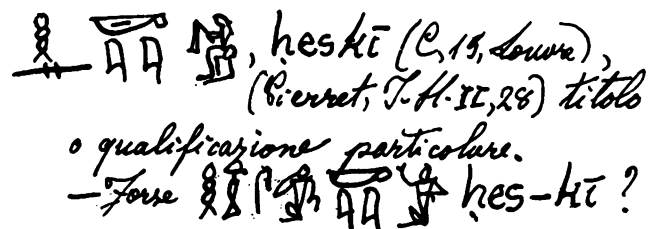 , ḥeskī (C, 15, Louvre),
(Pierret, I. H. II, 28) titolo
o qualificazione particolare.
— Forse ḥes-kī ?